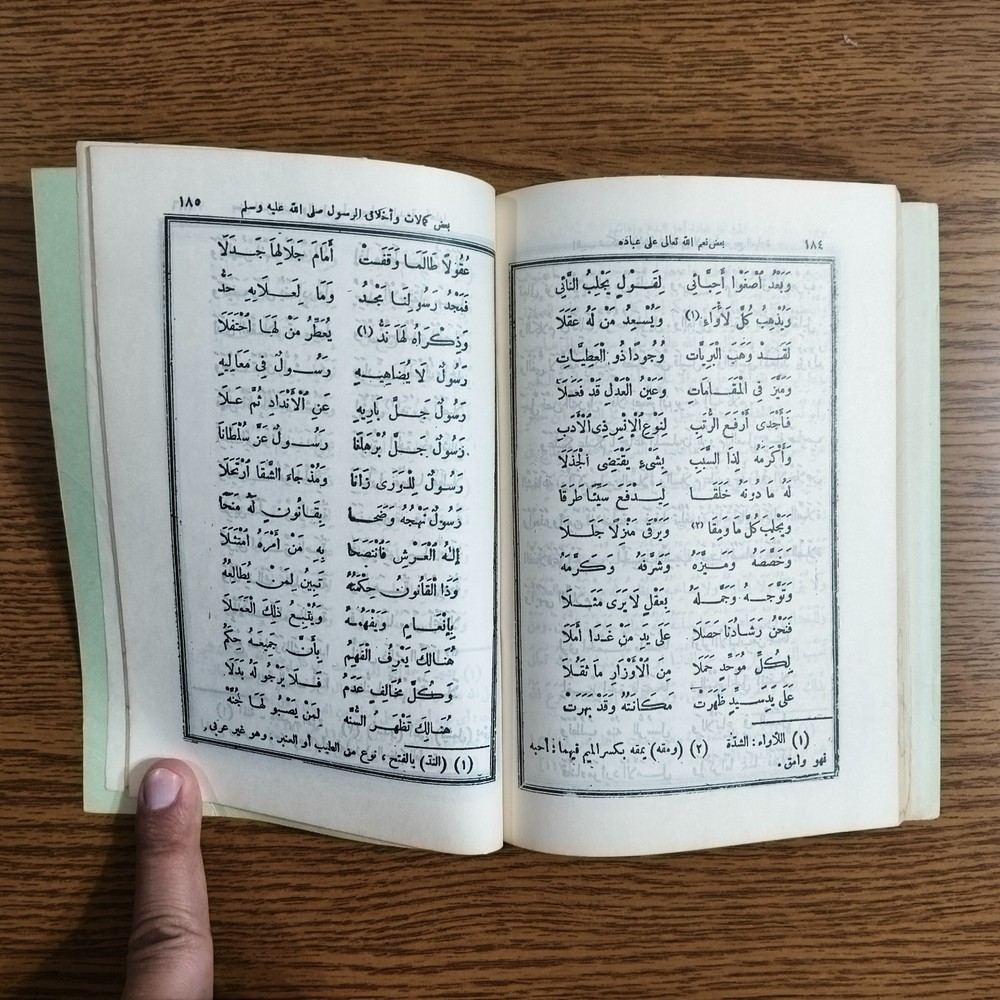 ١٨٤ بعض نعم الله تعالى على عباده
وَبَعْدُ اصْغَوْا أَحِبَّائِي لِقَوْلٍ يَجْلِبُ النَّائِي
وَيُذْهِبُ كُلَّ لَأْوَاءِ (١) وَيُسْعِدُ مَنْ لَهُ عَقَلَا
لَقَدْ وَهَبَ الْبَرِيَّاتِ وُجُودًا ذُو الْعَطِيَّاتِ
وَمَيَّزَ فِي الْمَقَامَاتِ وَعَيْنُ الْعَدْلِ قَدْ فَعَلَا
فَأَجْدَى أَرْفَعَ الرُّتَبِ لِنَوْعِ الْإِنْسِ ذِي الْأَدَبِ
وَأَكْرَمَهُ لِذَا السَّبَبِ بِشَيْءٍ يَقْتَضِي الْجَذَلَا
لَهُ مَا دُونَهُ خَلَقَا لِيَدْفَعَ سَيِّئًا طَرَقَا
وَيَجْلِبَ كُلَّ مَا وَمِقَا (٢) وَيَرْقَى مَنْزِلًا جَلَلَا
وَخَصَّصَهُ وَمَيَّزَهُ وَشَرَّفَهُ وَكَرَّمَهُ
وَتَوَّجَهُ وَجَمَّلَهُ بِعَقْلٍ لَا يَرَى مَثَلَا
فَنَحْنُ رَشَادُنَا حَصَلَا عَلَى يَدِ مَنْ غَدَا أَمَلَا
لِكُلِّ مُوَحِّدٍ حَمَلَا مِنَ الْأَوْزَارِ مَا ثَقُلَا
عَلَى يَدِ سَيِّدٍ ظَهَرَتْ مَكَانَتُهُ وَقَدْ بَهَرَتْ
(١) اللأواء : الشدّة (٢) (ومقه) يمقه بكسر الميم فيهما : أحبه
فهو وامق .
بعض كمالات وأخلاق الرسول صلى الله عليه وسلم ١٨٥
عُقُولًا طَالَمَا وَقَفَتْ أَمَامَ جَلَالِهَا جَدَلَا
فَمَجْدُ رَسُولِنَا مَجْدُ وَمَا لِعَلَائِهِ حَدُّ
وَذِكْرَاهُ لَهَا نَدُّ (١) يُعَطِّرُ مَنْ لَهَا احْتَفَلَا
رَسُولٌ لَا يُضَاهِيهِ رَسُولٌ فِي مَعَالِيهِ
رَسُولٌ جَلَّ بَارِيهِ عَنِ الْأَنْدَادِ ثُمَّ عَلَا
رَسُولٌ جَلَّ بُرْهَانَا رَسُولٌ عَزَّ سُلْطَانَا
رَسُولٌ لِلْوَرَى زَانَا وَمُذْ جَاءَ الشَّقَا ارْتَحَلَا
رَسُولٌ نَهْجُهُ وَضَحَا بِقَانُونٍ لَهُ مَنَحَا
إِلٰهُ الْعَرْشِ فَانْتَصَحَا بِهِ مَنْ أَمْرَهُ امْتَثَلَا
وَذَا الْقَانُونُ حِكْمَتُهُ تَبِينُ لِمَنْ يُطَالِعُهُ
بِإِنْعَامٍ وَيَفْهَمُهُ وَيُتْبِعُ ذٰلِكَ الْعَمَلَا
هُنَالِكَ يَعْرِفُ الْفَهِمُ بِأَنَّ جَمِيعَهُ حِكَمُ
وَكُلُّ مُخَالِفٍ عَدَمُ فَلَا يَرْجُو لَهُ بَدَلَا
هُنَالِكَ تَظْهَرُ السُّنَّهْ لِمَنْ يَصْبُو لَهَا جُنَّهْ
(١) (الندّ) بالفتح : نوع من الطيب أو العنبر . وهو غير عربي .